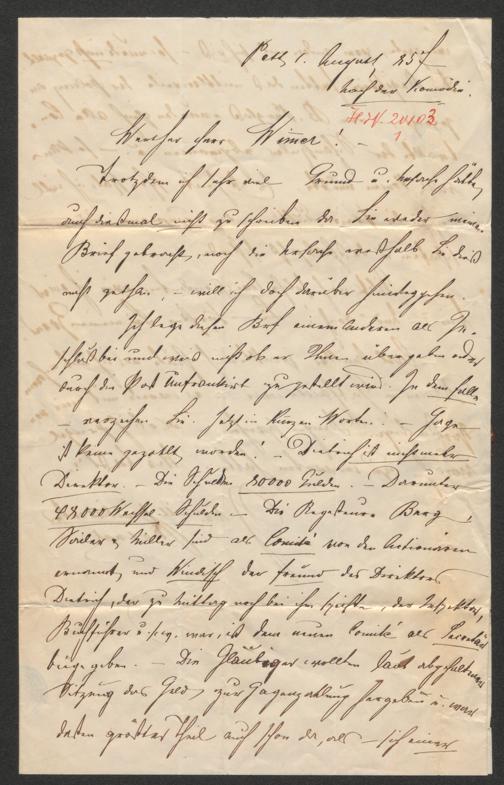 Pest, 1. August 85
nach der Komödie.
H.I.N. 20103
1
Werther Herr Wimmer! –
Trotzdem ich sehr viel Grund u. Ursache hätte,
auch diesmal nicht zu schreiben da Sie weder meinen
Brief gebracht, noch die Ursache weshalb Sie dies
nicht gethan, – will ich doch darüber hinweggehen.
Ich lege diesen Brf einem Anderen als Ein-
schluß bei und weis nicht ob er Ihnen übergeben oder
durch die Post unfrankirt zugestellt wird. In dem Falle
– verzeihen Sie. Jetzt in kurzen Worten. – Gage
ist keine gezahlt worden! – Dietrich ist nicht mehr
Direktor. – Die Schulden 80000 Gulden. – Darunter
48000 Wechsel Schulden – Die Regisseure Berg,
Seiler & Müller sind als Comité von den Actionären
ernannt, und Windisch der Freund des Direktors
Dietrich, der zu Mittag noch bei ihm speiste, der Inspektor,
Buchführer u. s. w. war, ist dem neuen Comité als Secretär
beigegeben. – Die Gläubiger wollten laut abgehaltener
Sitzung das Geld zur Gagenzahlung hergeben u. war
dessen größter Theil auch schon da, als – sich einer